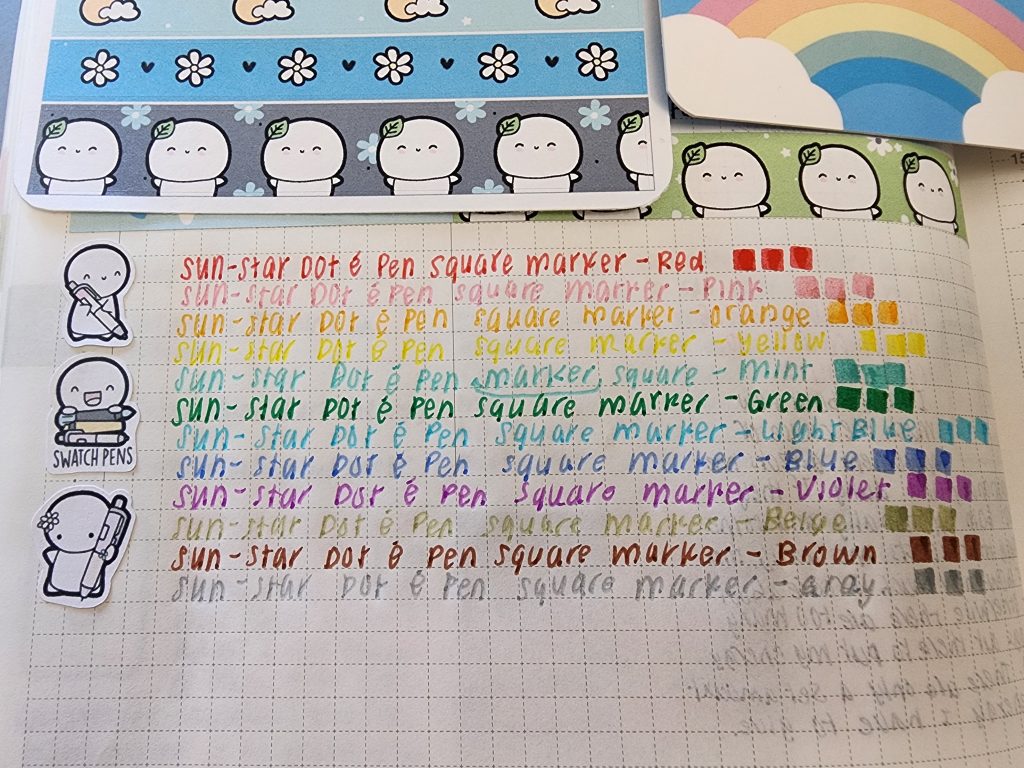 sun-star Dot é Pen square marker - Red
sun-star Dot é Pen square marker - Pink
sun-star Dot é Pen square marker - orange
sun-star Dot é Pen square marker - yellow
sun-star Dot é Pen marker square - mint
sun-star Dot é Pen square marker - Green
sun-star Dot é Pen square marker - Light Blue
SWATCH PENS
sun-star Dot é Pen square marker - Blue
sun-star Dot é Pen square marker - Violet
sun-star Dot é Pen square marker - Beige
sun-star Dot é Pen square marker - Brown
sun-star Dot é Pen square marker - Gray
15